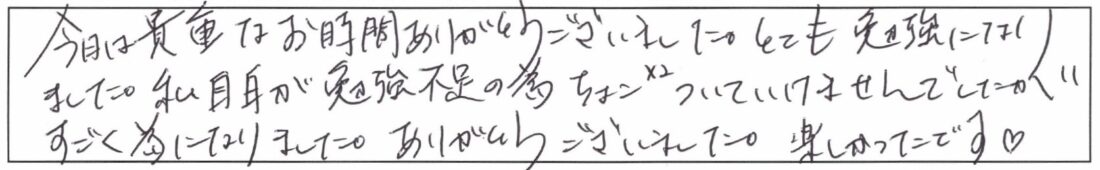 今日は貴重なお時間ありがとうございました。とても勉強になり
ました。私自身が勉強不足の為ちょこ×2ついていけませんでしたが、
すごく為になりました。ありがとうございました。楽しかったです♡